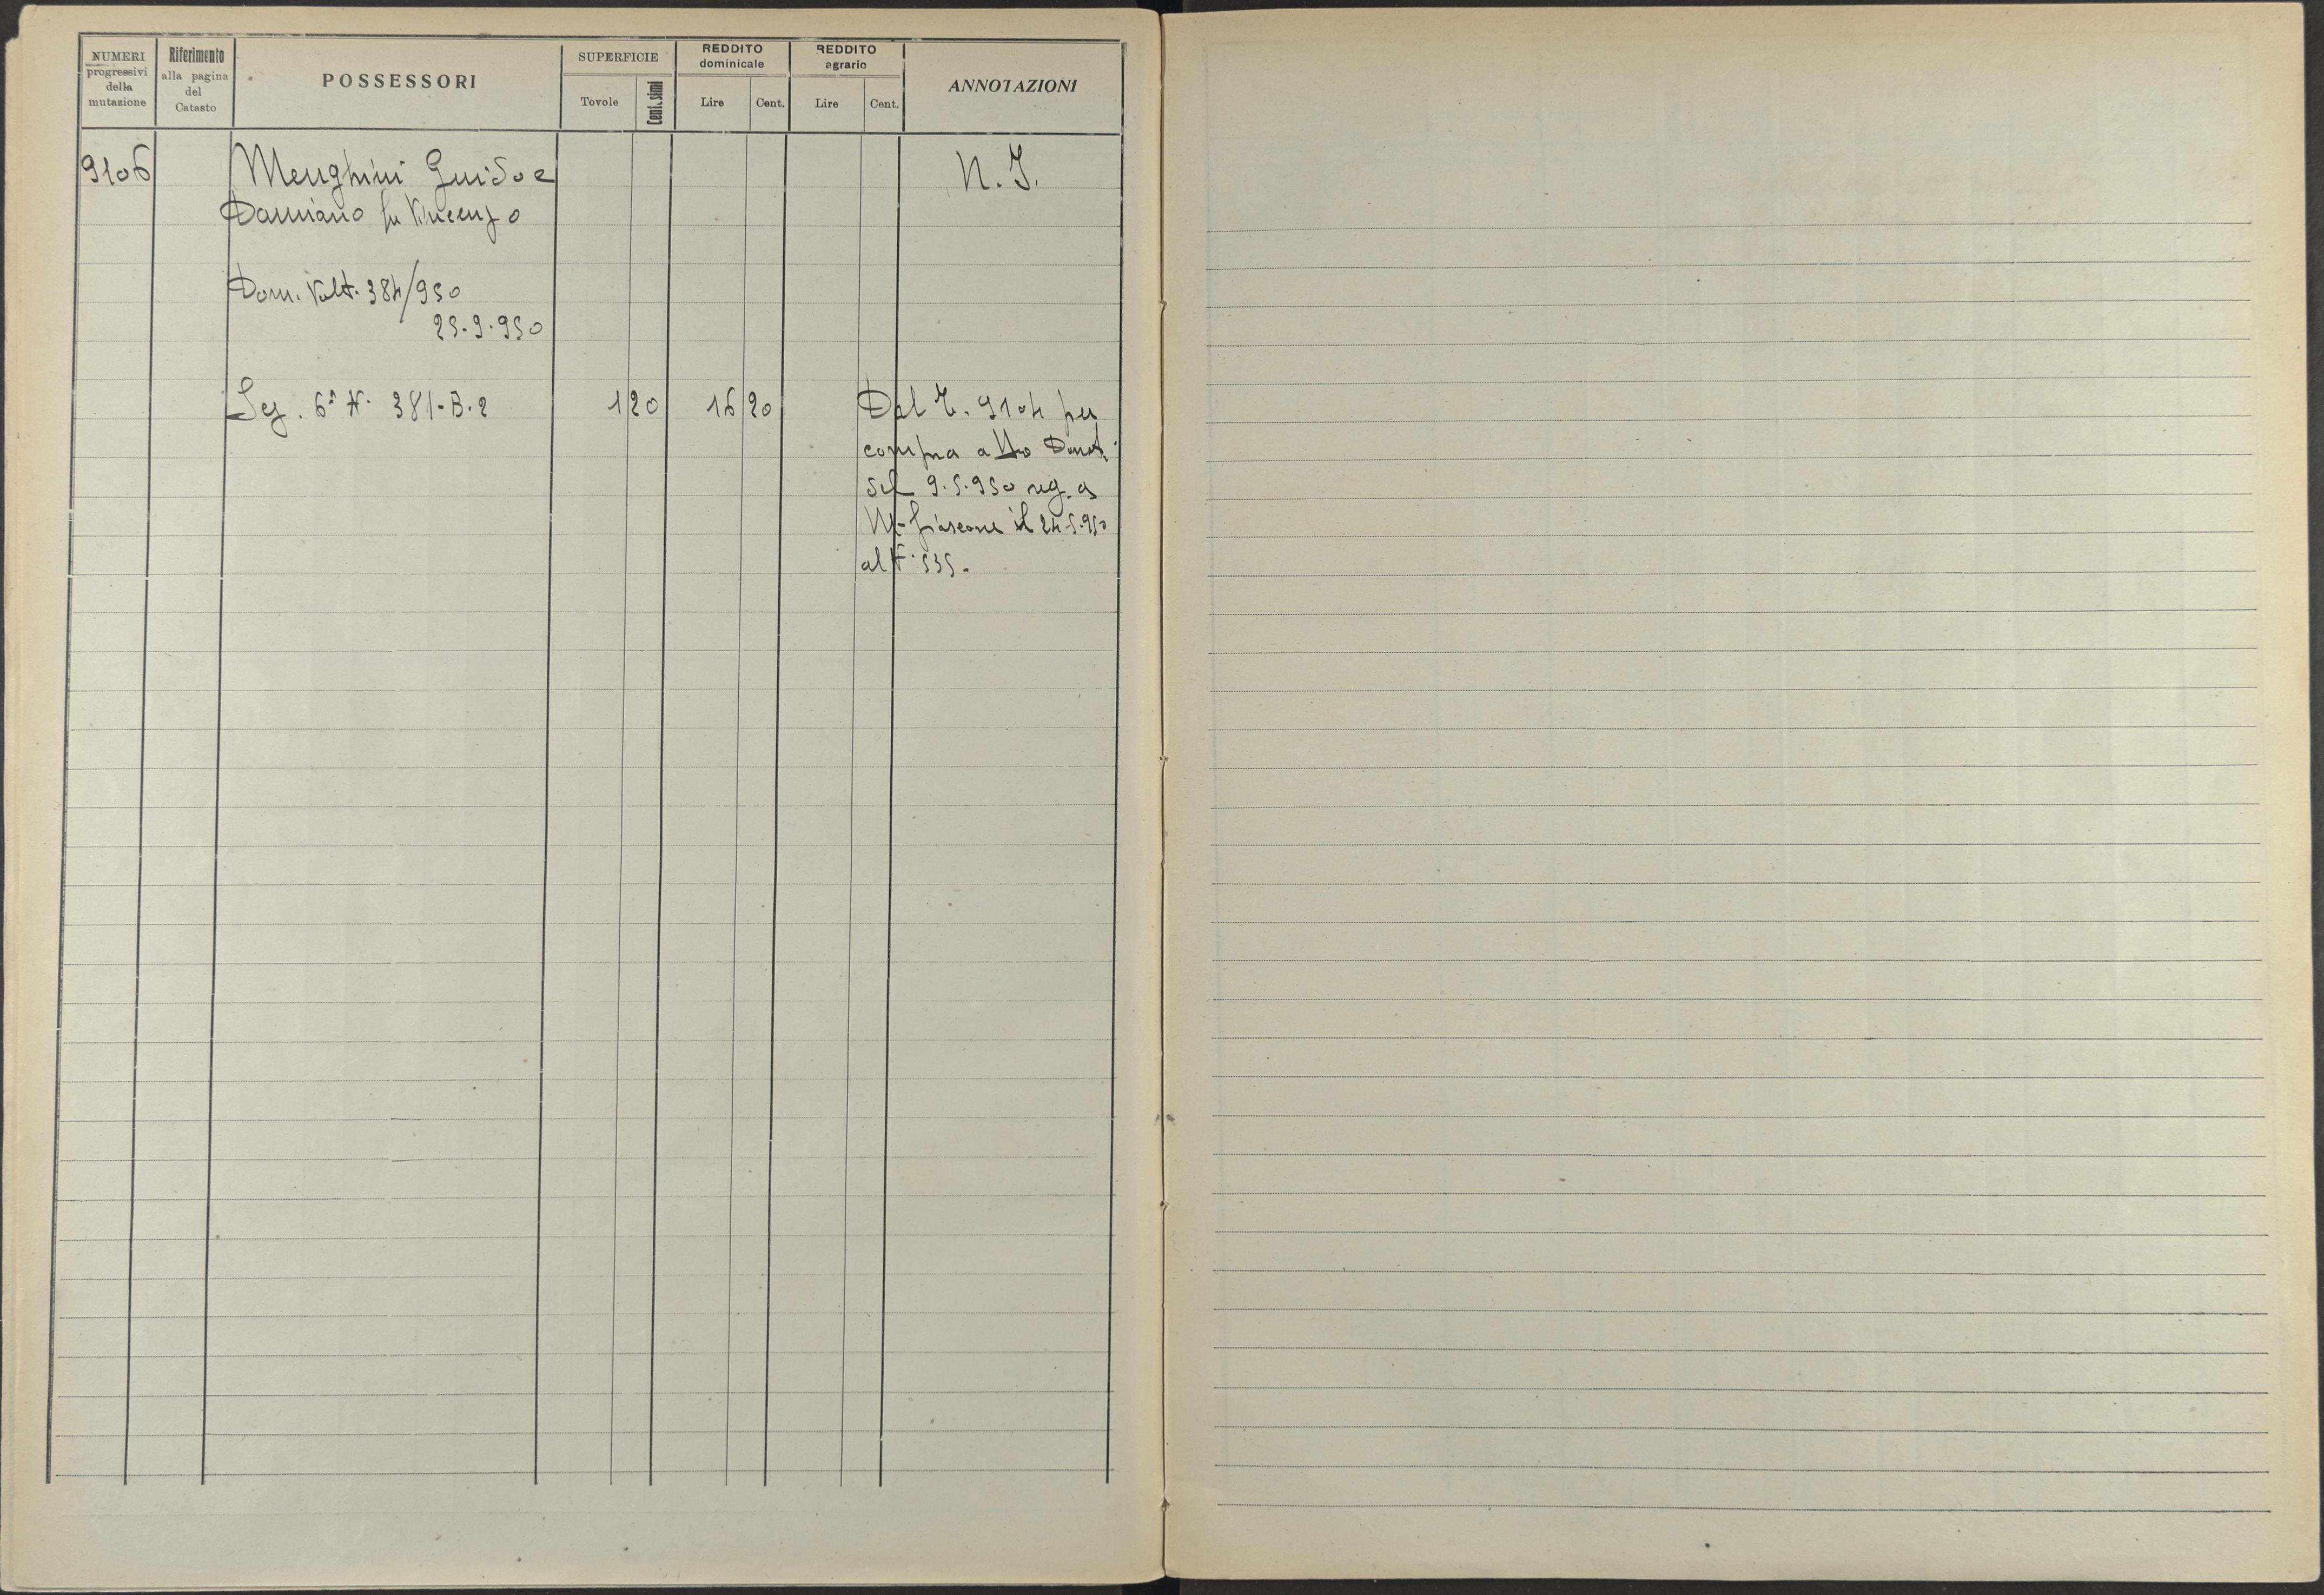 NUMERI progressivi della mutazione
Riferimento alla pagina del Catasto
POSSESSORI
SUPERFICIE
Tovole
Cent.simi
REDDITO dominicale
Lire
Cent.
REDDITO agrario
Lire
Cent.
ANNOTAZIONI
9106
Menghini Guido e
N.I.
Damiano fu Vincenzo
Dom. Volt. 384/950
25.9.950
Sez. 6ª N. 381-B.2
1 20
16 20
Dal T. 9104 per
compra atto Donat.
del 9.5.950 reg. a
M-fiascone il 24.5.950
al N. 535.